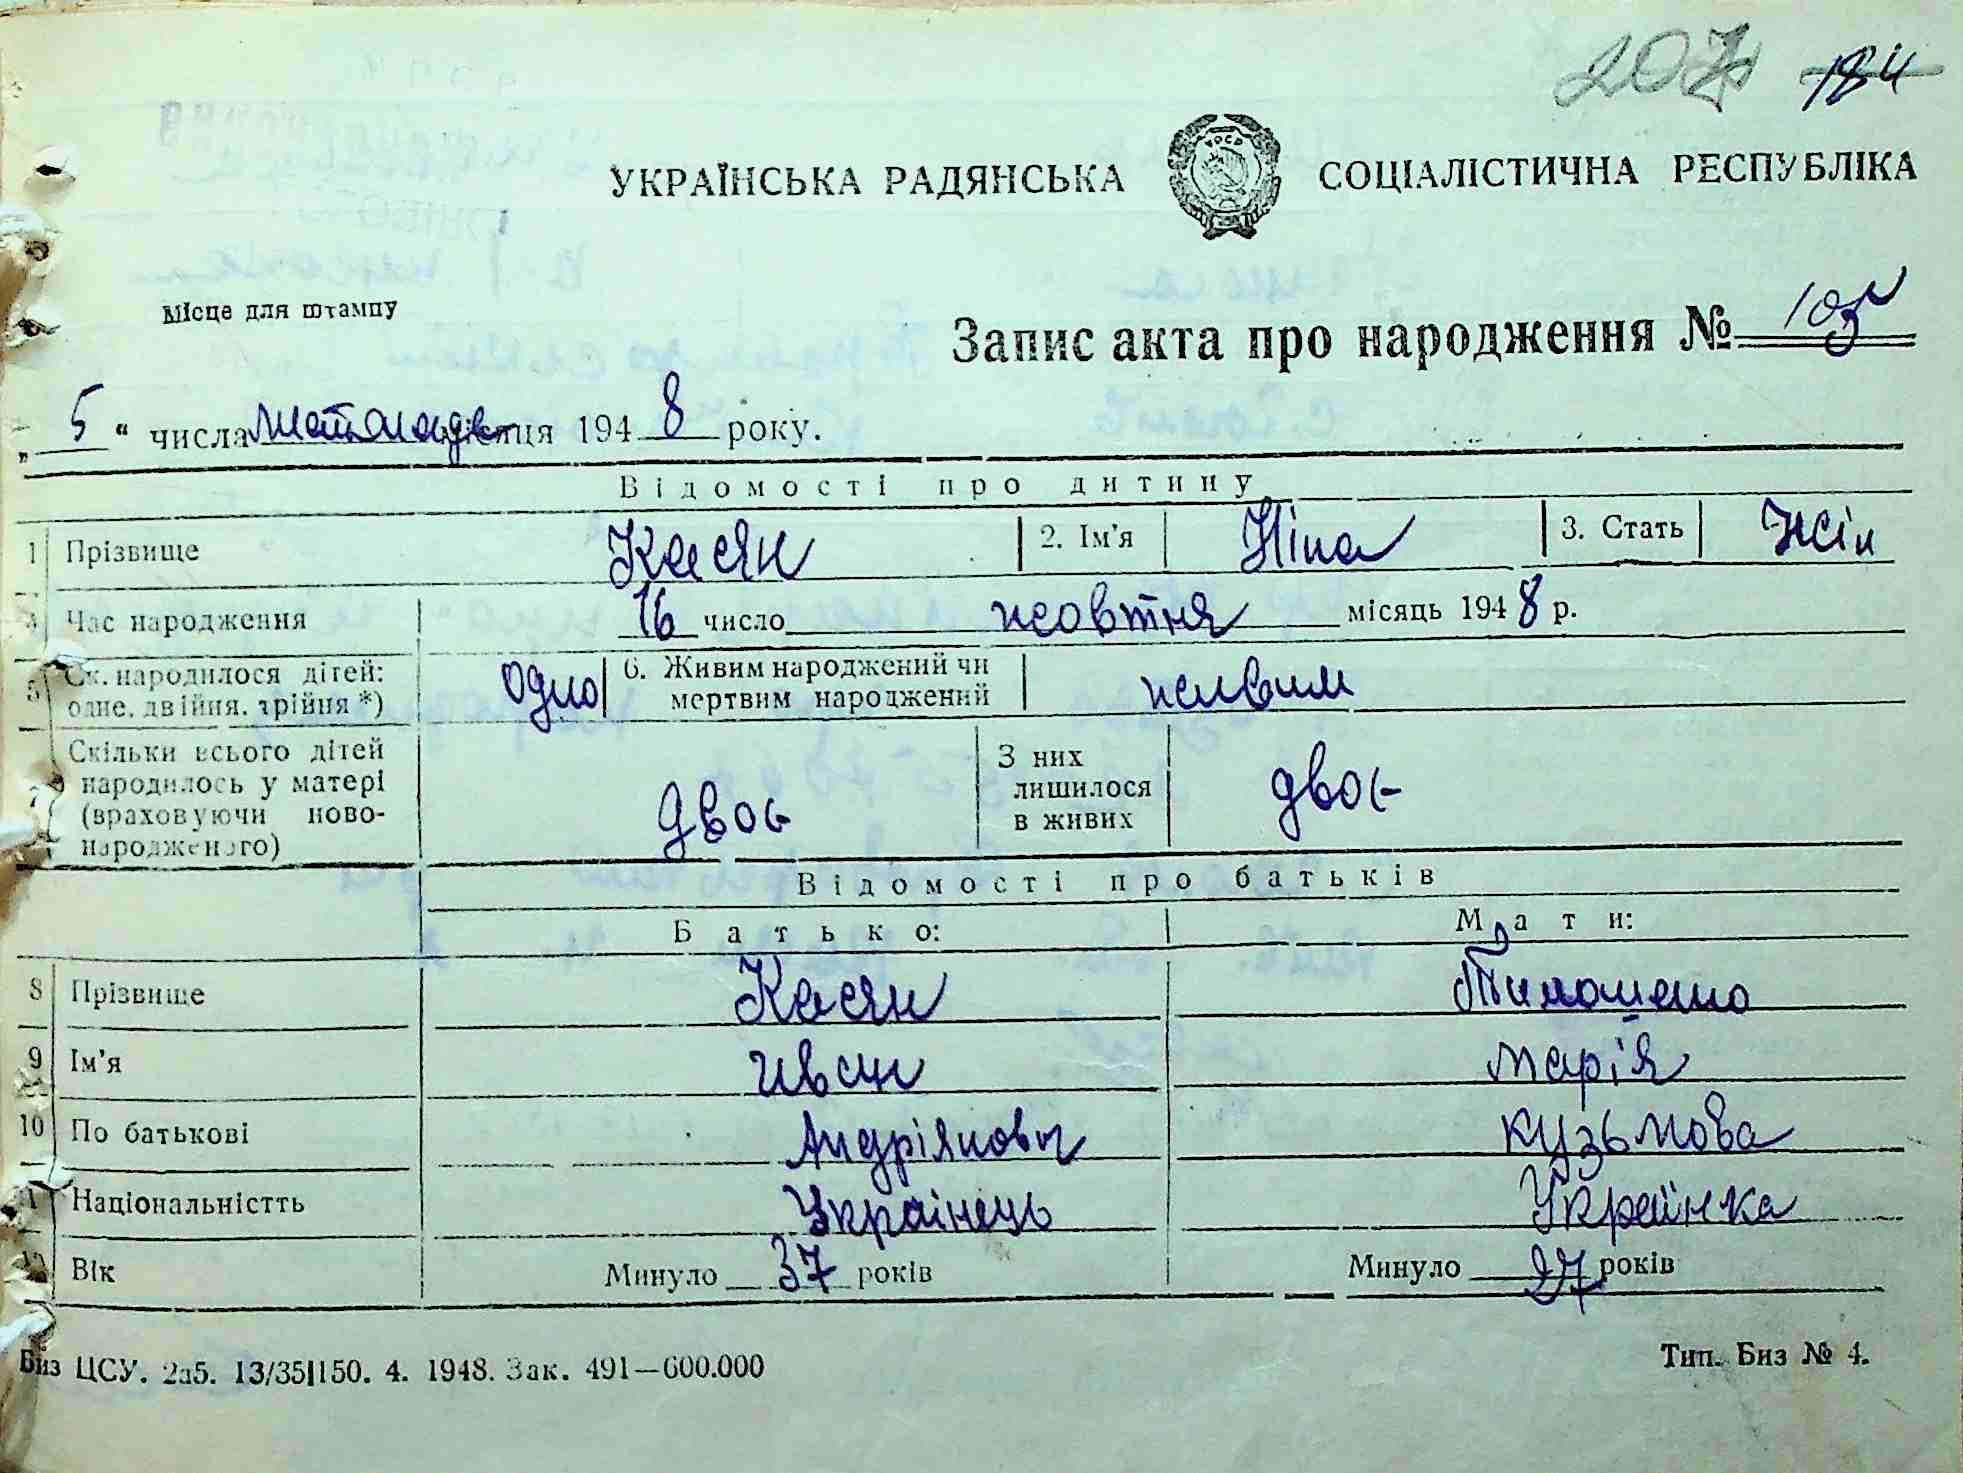 207 184
УКРАЇНСЬКА РАДЯНСЬКА СОЦІАЛІСТИЧНА РЕСПУБЛІКА
УРСР
Місце для штампу
Запис акта про народження №
„ 5 “ числа листопада місяця 1948 року.
Відомості про дитину
1 Прізвище Касян 2. Ім'я Ніна 3. Стать жін
4 Час народження 16 число жовтня місяць 1948 р.
5 Ск. народилося дітей: одне, двійня, трійня *) одно 6. Живим народжений чи мертвим народжений живим
7 Скільки всього дітей народилось у матері (враховуючи новонародженого) двоє З них лишилося в живих двоє
Відомості про батьків
Батько: Мати:
8 Прізвище Касян Тимошенко
9 Ім'я Иван Марія
10 По батькові Андріянович Кузьмова
11 Національністть Українець Українка
12 Вік Минуло 37 років Минуло 27 років
Биз ЦСУ. 2а5. 13/35|150. 4. 1948. Зак. 491—600.000 Тип. Биз № 4.